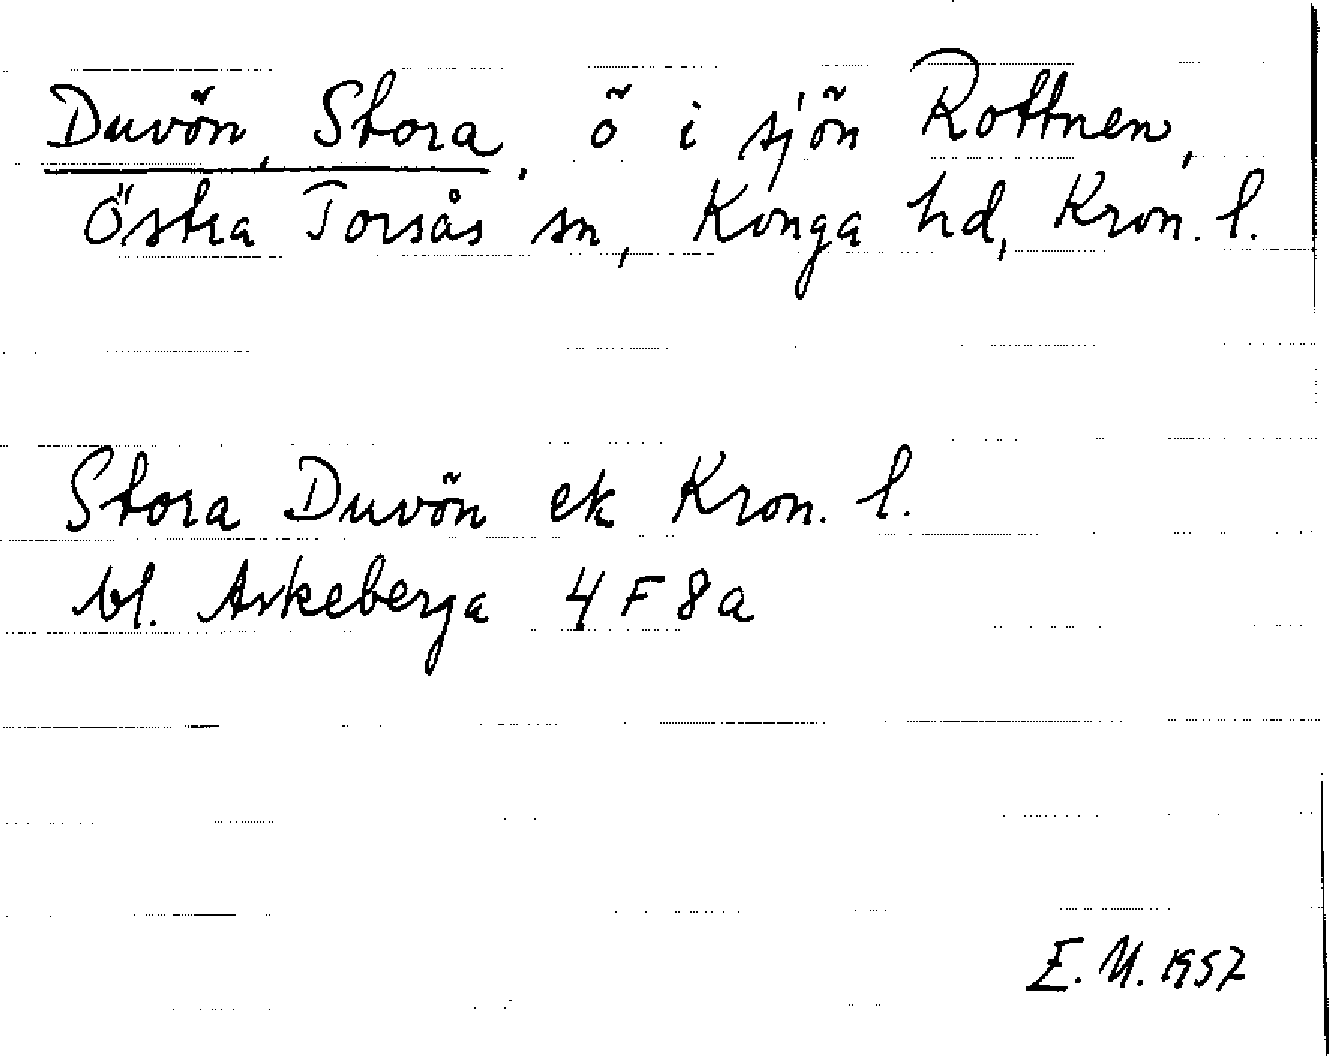 Duvön, Stora, ö i sjön Rottnen,
Östra Torsås sn, Konga hd, Kron. l.
Stora Duvön ek Kron. l.
bl. Askeberga 4 F 8 a
E. M. 1957